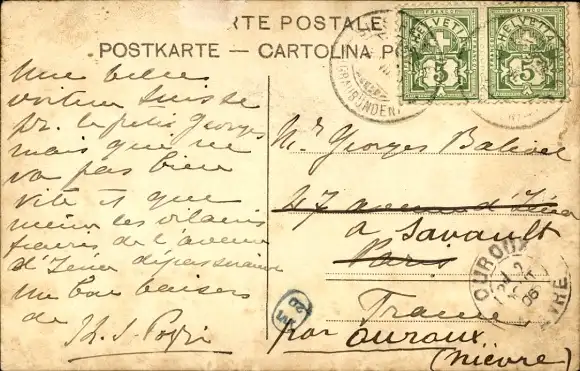 CARTE POSTALE
POSTKARTE — CARTOLINA PO
FRANCO
HELVETIA
5
FRANCO
HELVETIA
5
(GRAUBÜNDEN)
Une belle
voiture suisse
pr. le petit Georges
mais qui ne
va pas bien
vite et que
même les vilains
fiacres de l'avenue
d'Iéna dépasseraient
Un bon baiser
de
Mr Georges Balivet
47 avenue d'Iéna
à Savault
Paris
France
par Ouroux
(Nièvre)
OUROUX
06
NIÈVRE
M
20